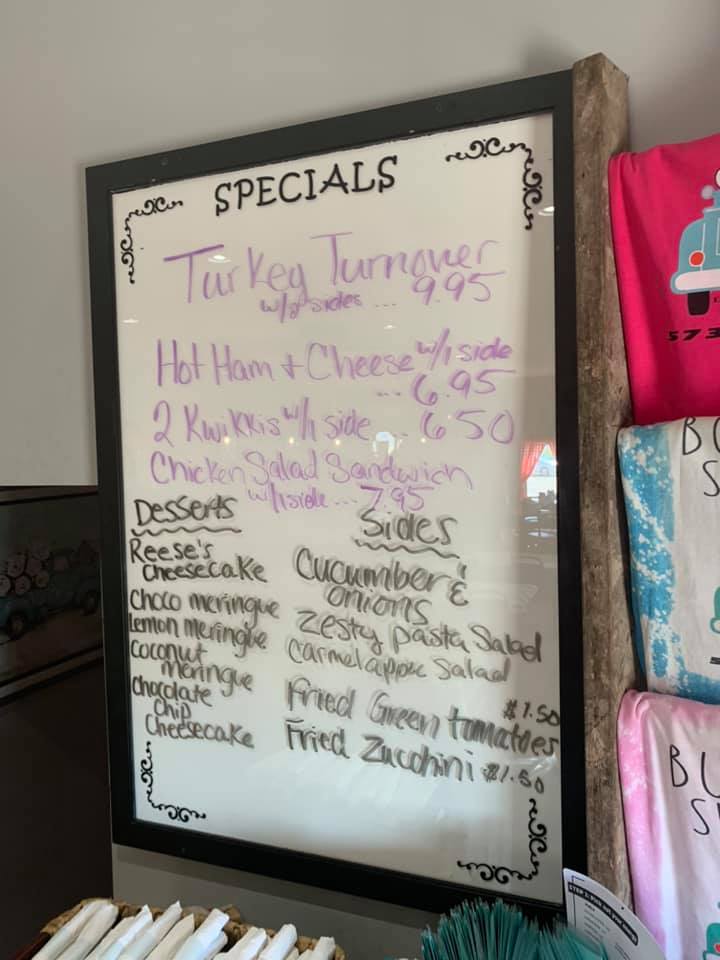 SPECIALS
Turkey Turnover
w/2 sides ... 9.95
Hot Ham + Cheese w/1 side
... 6.95
2 Kwikkis w/1 side ... 6.50
Chicken Salad Sandwich
w/1 side ... 7.95
Desserts
Reese's
Cheesecake
Choco meringue
Lemon meringue
Coconut
meringue
Chocolate
Chip
Cheesecake
Sides
Cucumber &
onions
Zesty pasta Salad
Carmel apple Salad
Fried Green tomatoes $1.50
Fried Zucchini $1.50
573
BU
S
BU
S